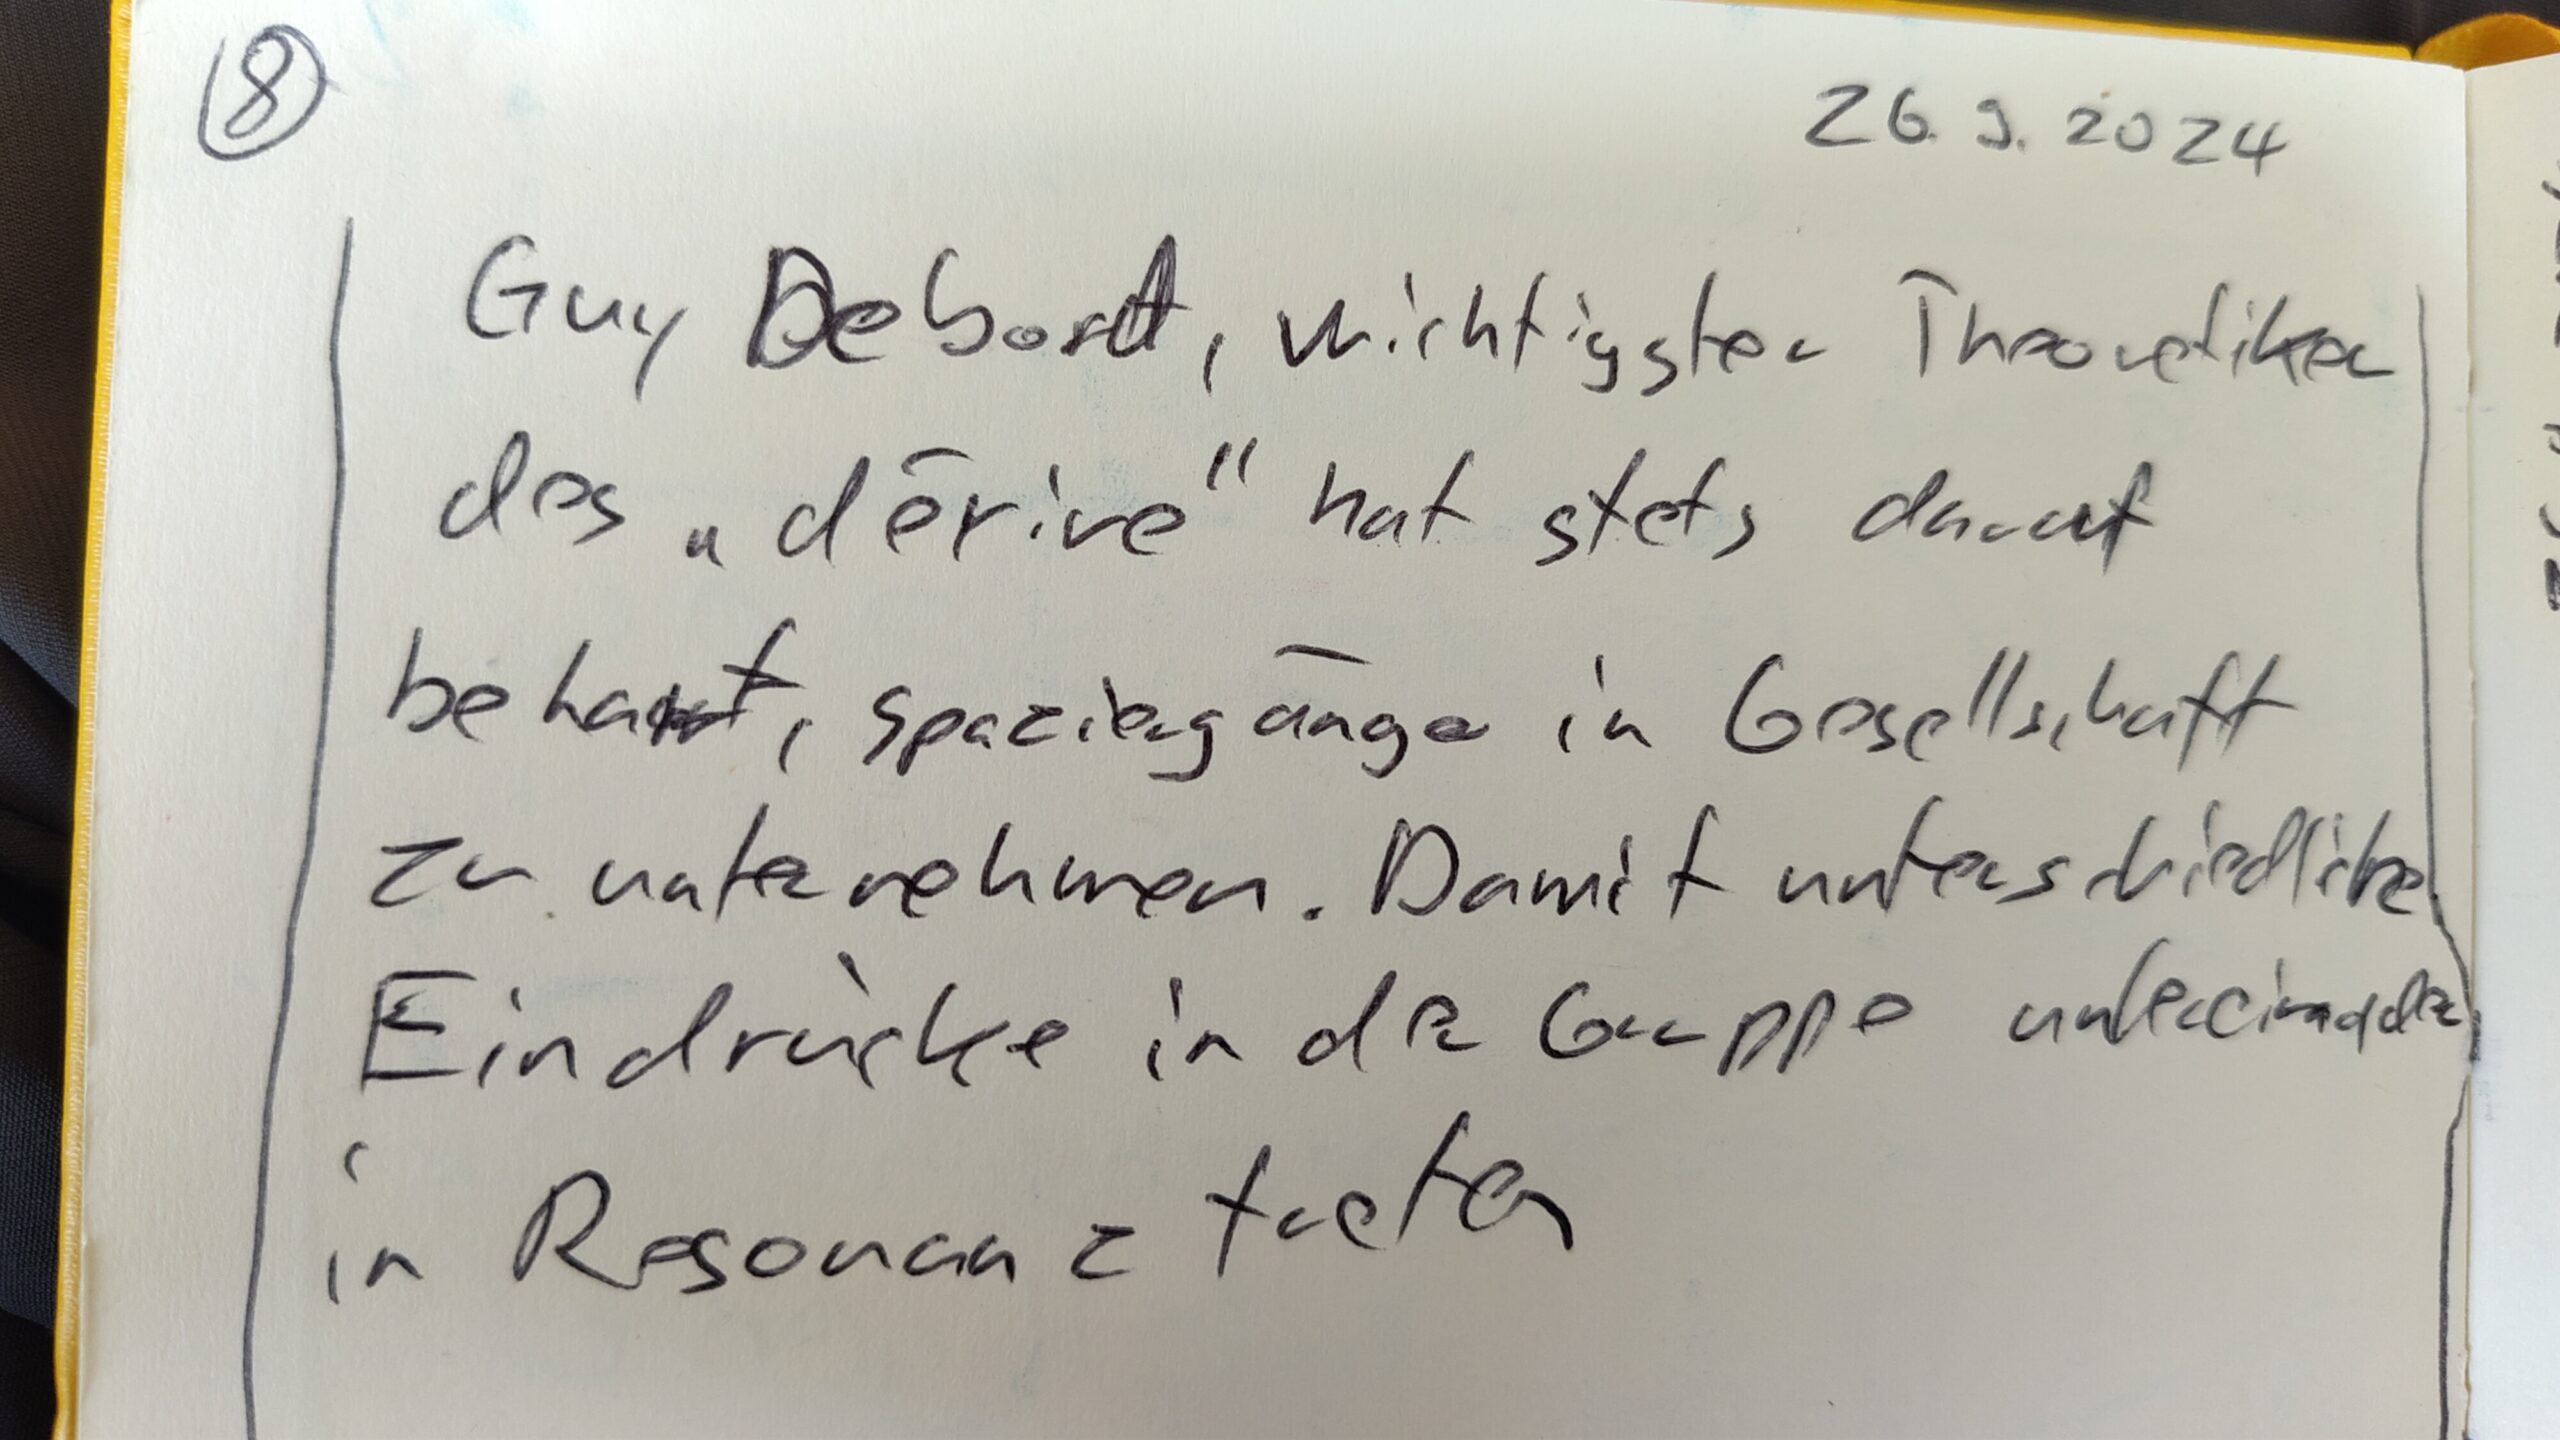 8
26.9.2024
Guy Debord, wichtigster Theoretiker
des „dērive“ hat stets darauf
beharrt, spaziergänge in Gesellschaft
zu unternehmen. Damit unterschiedliche
Eindrücke in der Gruppe untereinander
in Resonanz treten